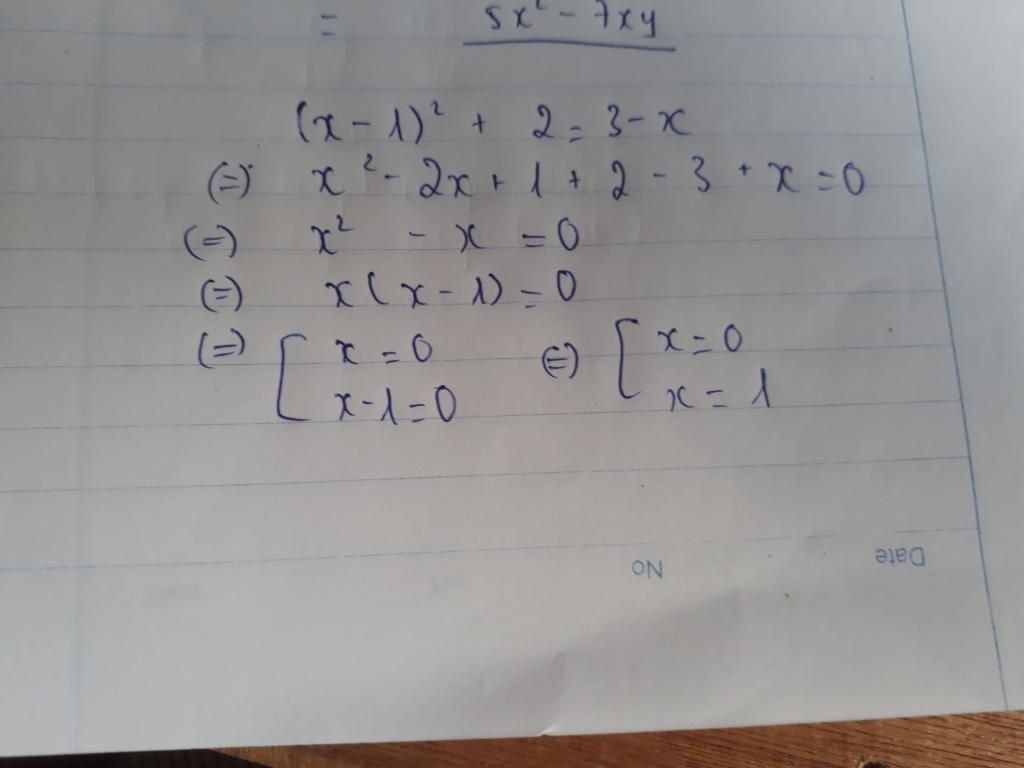 = 5x² - 7xy
(x - 1)² + 2 = 3 - x
(=) x² - 2x + 1 + 2 - 3 + x = 0
(=) x² - x = 0
(=) x (x - 1) = 0
(=) [ x = 0 (=) [ x = 0
x - 1 = 0 x = 1
No Date